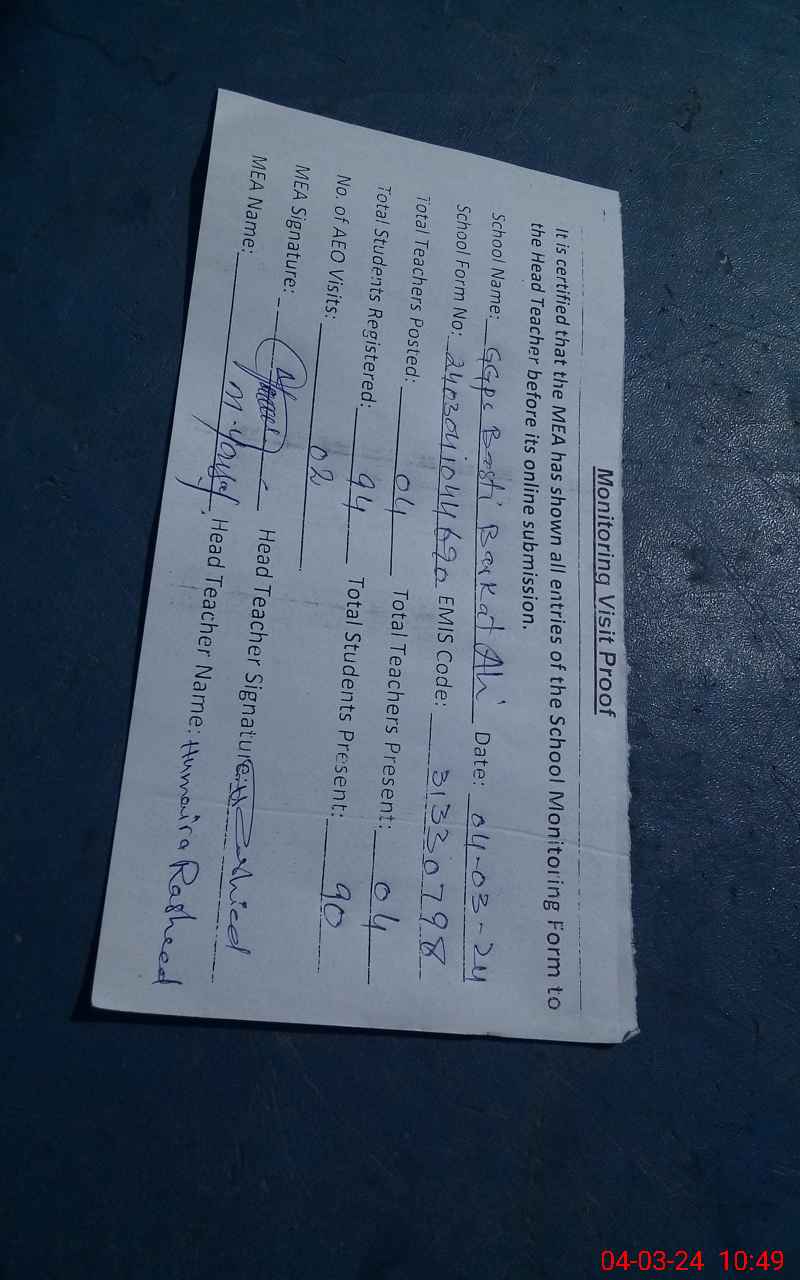 Monitoring Visit Proof
It is certified that the MEA has shown all entries of the School Monitoring Form to
the Head Teacher before its online submission.
School Name: GGps Basti Barkat Ali Date: 04-03-24
School Form No: EMIS Code: 31330798
Total Teachers Posted: 04 Total Teachers Present: 04
Total Students Registered: 94 Total Students Present: 90
No. of AEO Visits: 02
MEA Signature: Head Teacher Signature: H Rasheed
MEA Name: M. Yousaf, Head Teacher Name: Humaira Rasheed
04-03-24 10:49